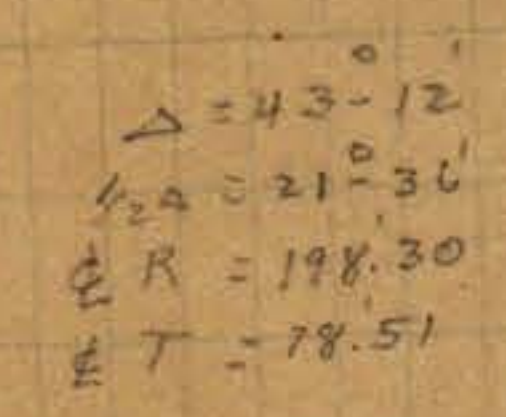 Δ = 43°-12'
1/2 Δ = 21°-36'
℄ R = 198.'30
℄ T = 78.'51